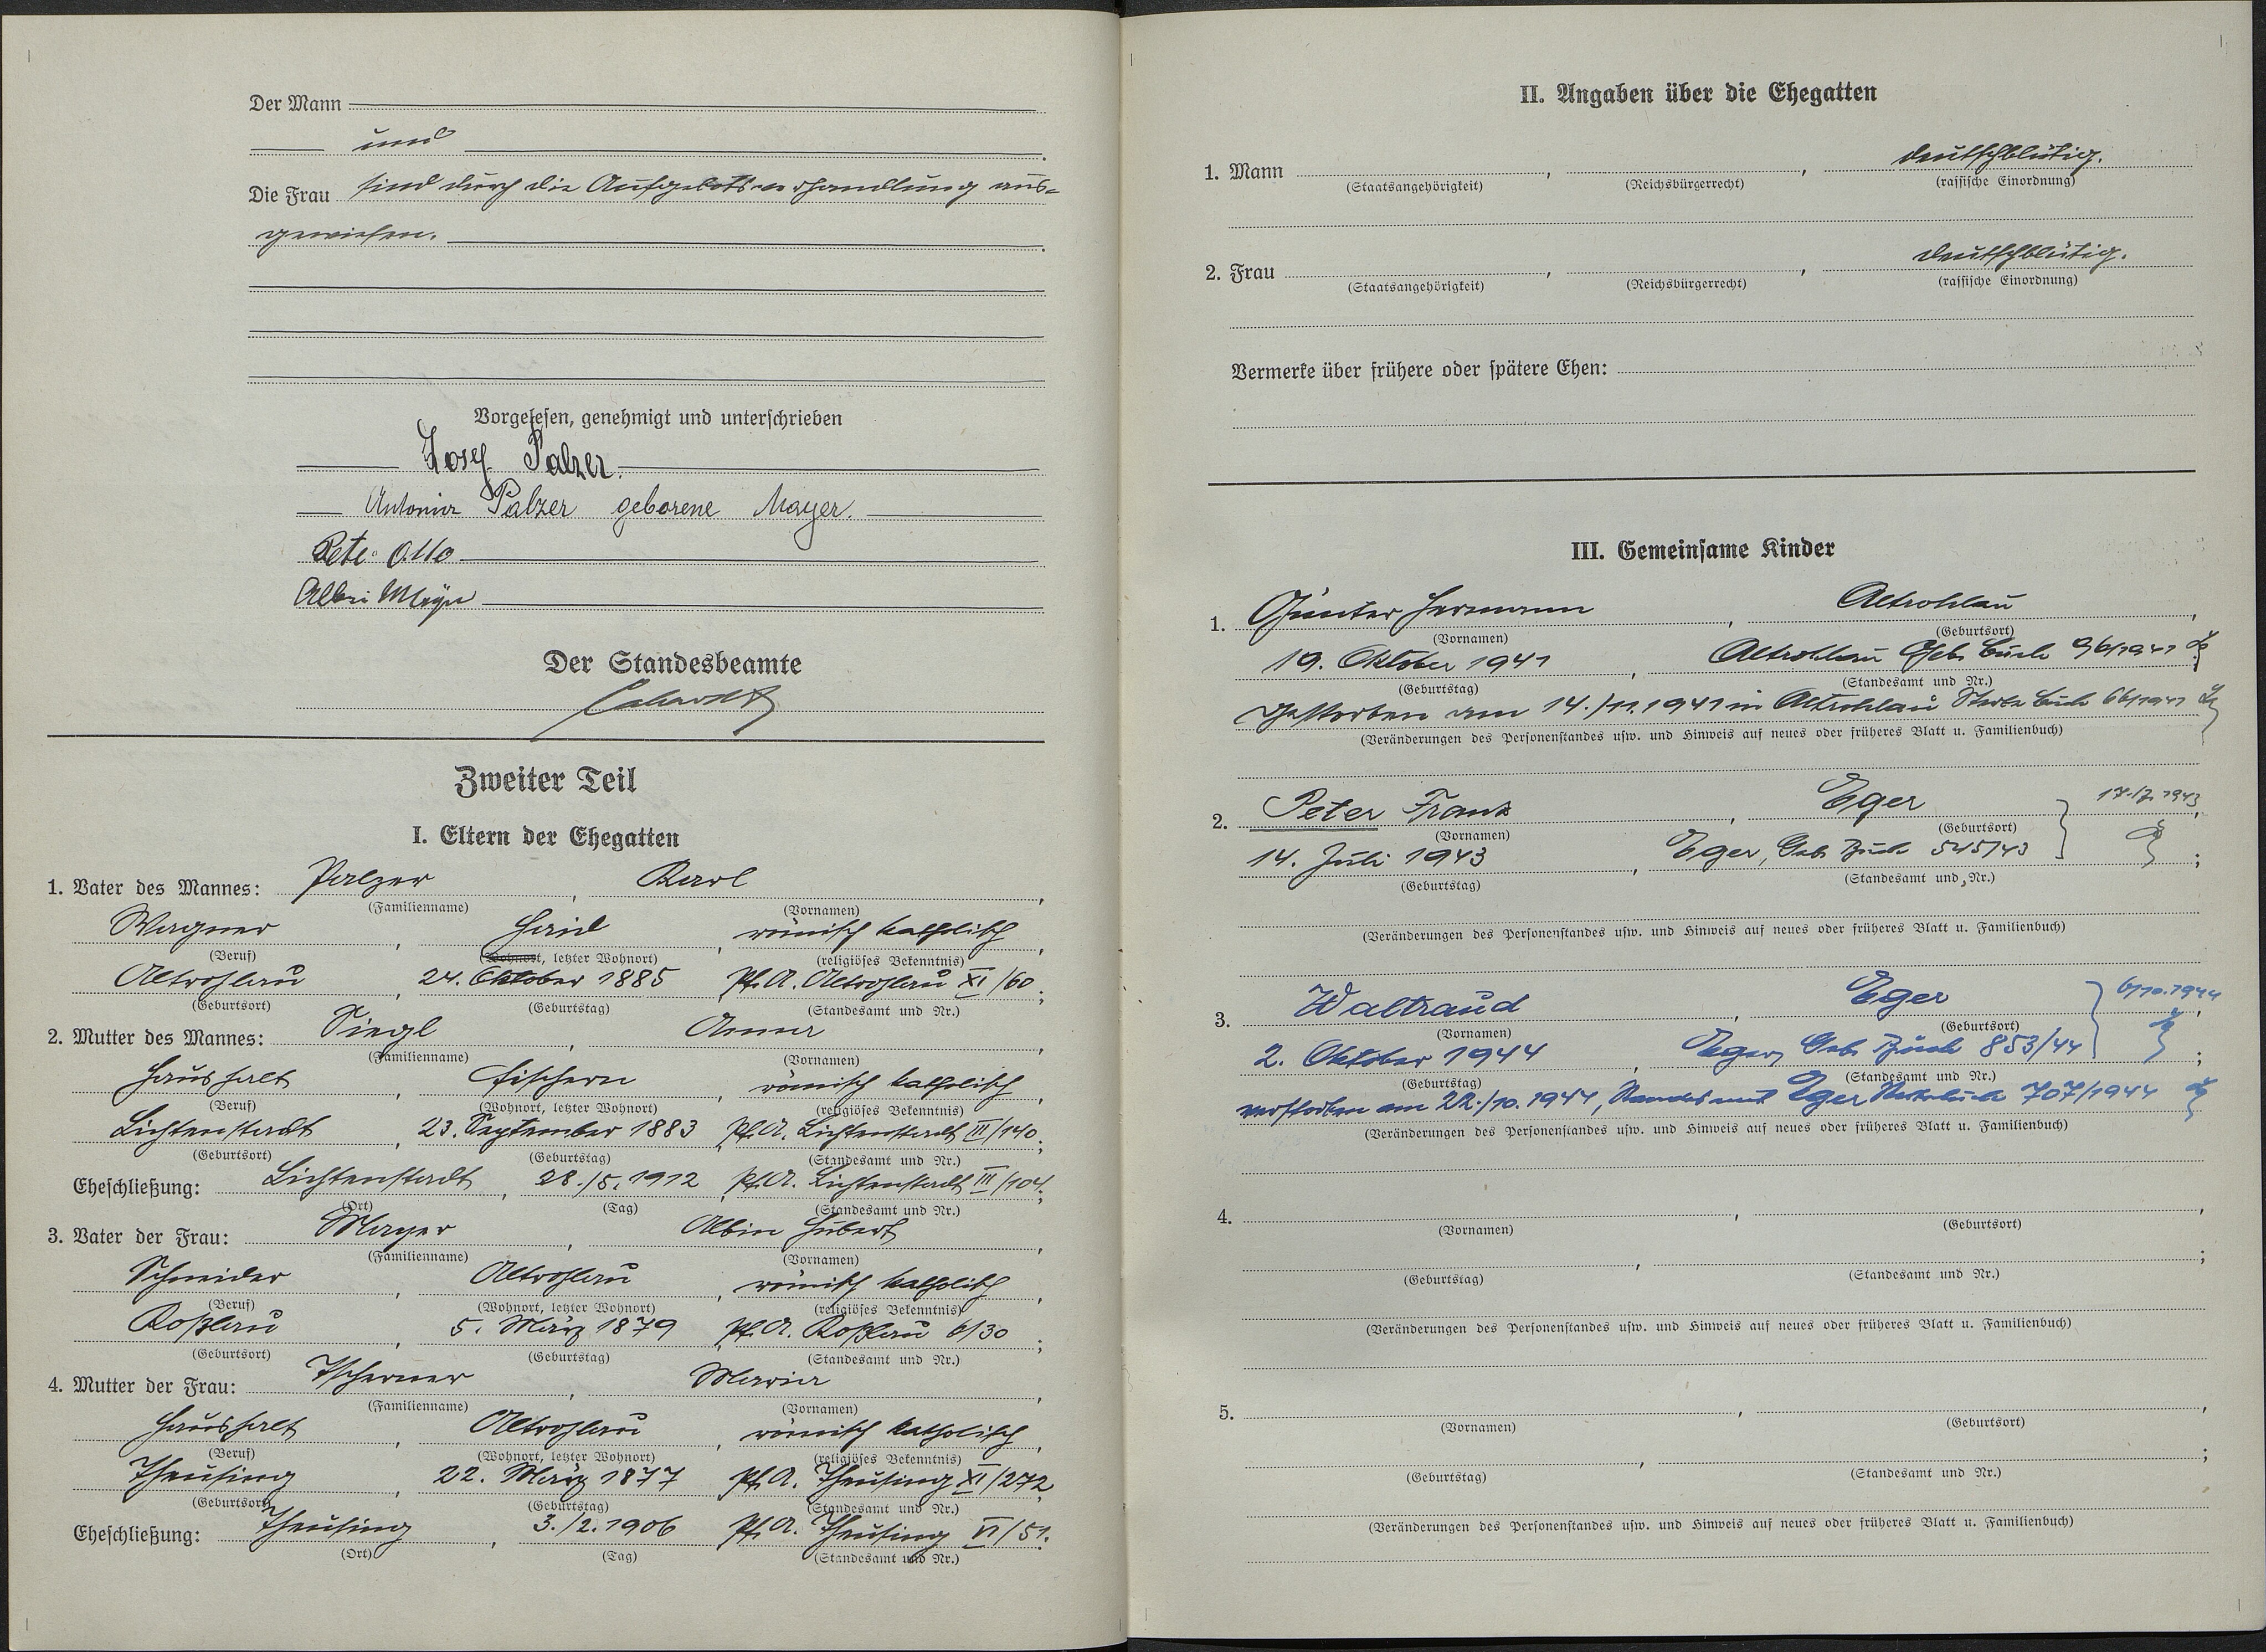 Der Mann
und
Die Frau sind durch die Aufgebotsverhandlung aus=
gewiesen.
Vorgelesen, genehmigt und unterschrieben
Josef Palzer.
Antonia Palzer geborene Mayer.
Otto
Der Standesbeamte
Zweiter Teil
I. Eltern der Ehegatten
1. Vater des Mannes: Palzer, Karl,
(Familienname) (Vornamen)
Wagner, Haid, römisch katholisch,
(Beruf) (Wohnort, letzter Wohnort) (religiöses Bekenntnis)
Altrohlau, 24. Oktober 1885 Pf. A. Altrohlau XI/60;
(Geburtsort) (Geburtstag) (Standesamt und Nr.)
2. Mutter des Mannes: Siegl, Anna,
(Familienname) (Vornamen)
Haushalt, Fischern, römisch katholisch,
(Beruf) (Wohnort, letzter Wohnort) (religiöses Bekenntnis)
Lichtenstadt, 23. September 1883, Pf. A. Lichtenstadt III/140;
(Geburtsort) (Geburtstag) (Standesamt und Nr.)
Eheschließung: Lichtenstadt, 28./5. 1912, Pf. A. Lichtenstadt III/104.
(Ort) (Tag) (Standesamt und Nr.)
3. Vater der Frau: Mayer, Albin Hubert,
(Familienname) (Vornamen)
Schneider, Altrohlau, römisch katholisch,
(Beruf) (Wohnort, letzter Wohnort) (religiöses Bekenntnis)
Koßlau, 5. März 1879, Pf. A. Koßlau 6/30;
(Geburtsort) (Geburtstag) (Standesamt und Nr.)
4. Mutter der Frau: Tscherner, Maria,
(Familienname) (Vornamen)
Haushalt, Altrohlau, römisch katholisch,
(Beruf) (Wohnort, letzter Wohnort) (religiöses Bekenntnis)
Theusing, 22. März 1877 Pf. A. Theusing XI/272,
(Geburtsort) (Geburtstag) (Standesamt und Nr.)
Eheschließung: Theusing, 3./2. 1906 Pf. A. Theusing VI/51.
(Ort) (Tag) (Standesamt und Nr.)
II. Angaben über die Ehegatten
1. Mann , , deutschblütig.
(Staatsangehörigkeit) (Reichsbürgerrecht) (rassische Einordnung)
2. Frau , , deutschblütig.
(Staatsangehörigkeit) (Reichsbürgerrecht) (rassische Einordnung)
Vermerke über frühere oder spätere Ehen:
III. Gemeinsame Kinder
1. Günter Hermann, Altrohlau,
(Vornamen) (Geburtsort)
19. Oktober 1941, Altrohlau Geb. Buch 96/1941
(Geburtstag) (Standesamt und Nr.)
Gestorben am 14./11. 1941 in Altrohlau Sterbe Buch 66/1941
(Veränderungen des Personenstandes usw. und Hinweis auf neues oder früheres Blatt u. Familienbuch)
2. Peter Franz, Eger 17./7. 1943,
(Vornamen) (Geburtsort)
14. Juli 1943, Eger, Geb. Buch 545/43;
(Geburtstag) (Standesamt und Nr.)
(Veränderungen des Personenstandes usw. und Hinweis auf neues oder früheres Blatt u. Familienbuch)
3. Waltraud, Eger 6/10. 1944,
(Vornamen) (Geburtsort)
2. Oktober 1944, Eger, Geb. Buch 853/44;
(Geburtstag) (Standesamt und Nr.)
verstorben am 22./10. 1944, Standesamt Eger Sterbebuch 707/1944
(Veränderungen des Personenstandes usw. und Hinweis auf neues oder früheres Blatt u. Familienbuch)
4. , ,
(Vornamen) (Geburtsort)
, ;
(Geburtstag) (Standesamt und Nr.)
(Veränderungen des Personenstandes usw. und Hinweis auf neues oder früheres Blatt u. Familienbuch)
5. , ,
(Vornamen) (Geburtsort)
, ;
(Geburtstag) (Standesamt und Nr.)
(Veränderungen des Personenstandes usw. und Hinweis auf neues oder früheres Blatt u. Familienbuch)